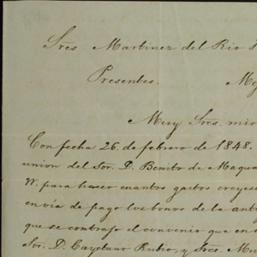 Sres. Martinez del Rio
Presentes.
Muy Sres. mio
Con fecha 26 de febrero de 1848.
union del Sor. D. Benito de Maqua
W. para hacer cuantos gastos creyese
envia de pago los bonos de la ant
que se contrajo el convenio que en
Sor. D. Cayetano Rubio, y Sres. M